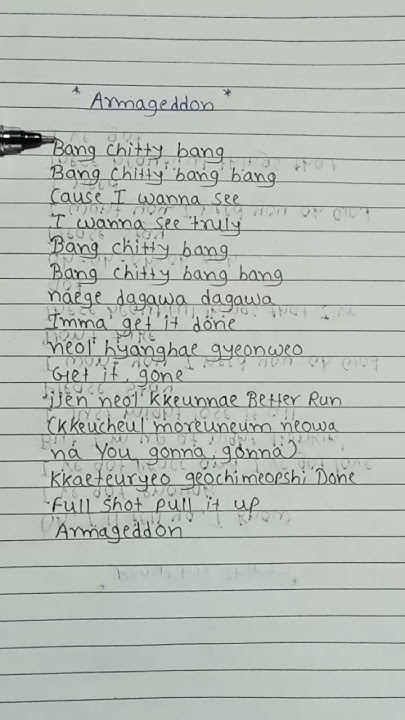 * Armageddon *
Bang chitty bang
Bang chitty bang bang
Cause I wanna see
I wanna see truly
Bang chitty bang
Bang chitty bang bang
naege dagawa dagawa
Imma get it done
neol hyanghae gyeonweo
Get it, gone
ijen neol kkeunnae Better Run
(kkeucheul moreuneum neowa
na You gonna, gonna)
Kkaeteuryeo geochimeopshi Done
Full shot pull it up
Armageddon